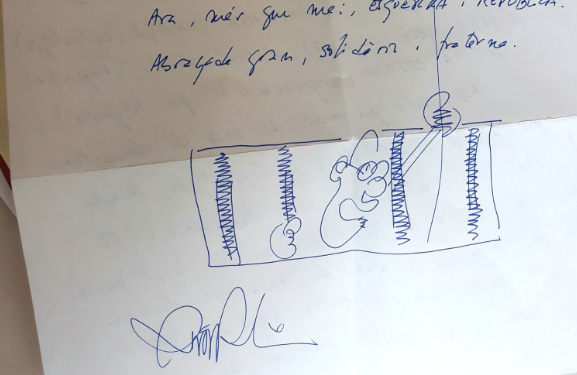 Ara, més que mai, ESQUERRA i REPÚBLICA.
Abraçada gran, solidària i fraterna.